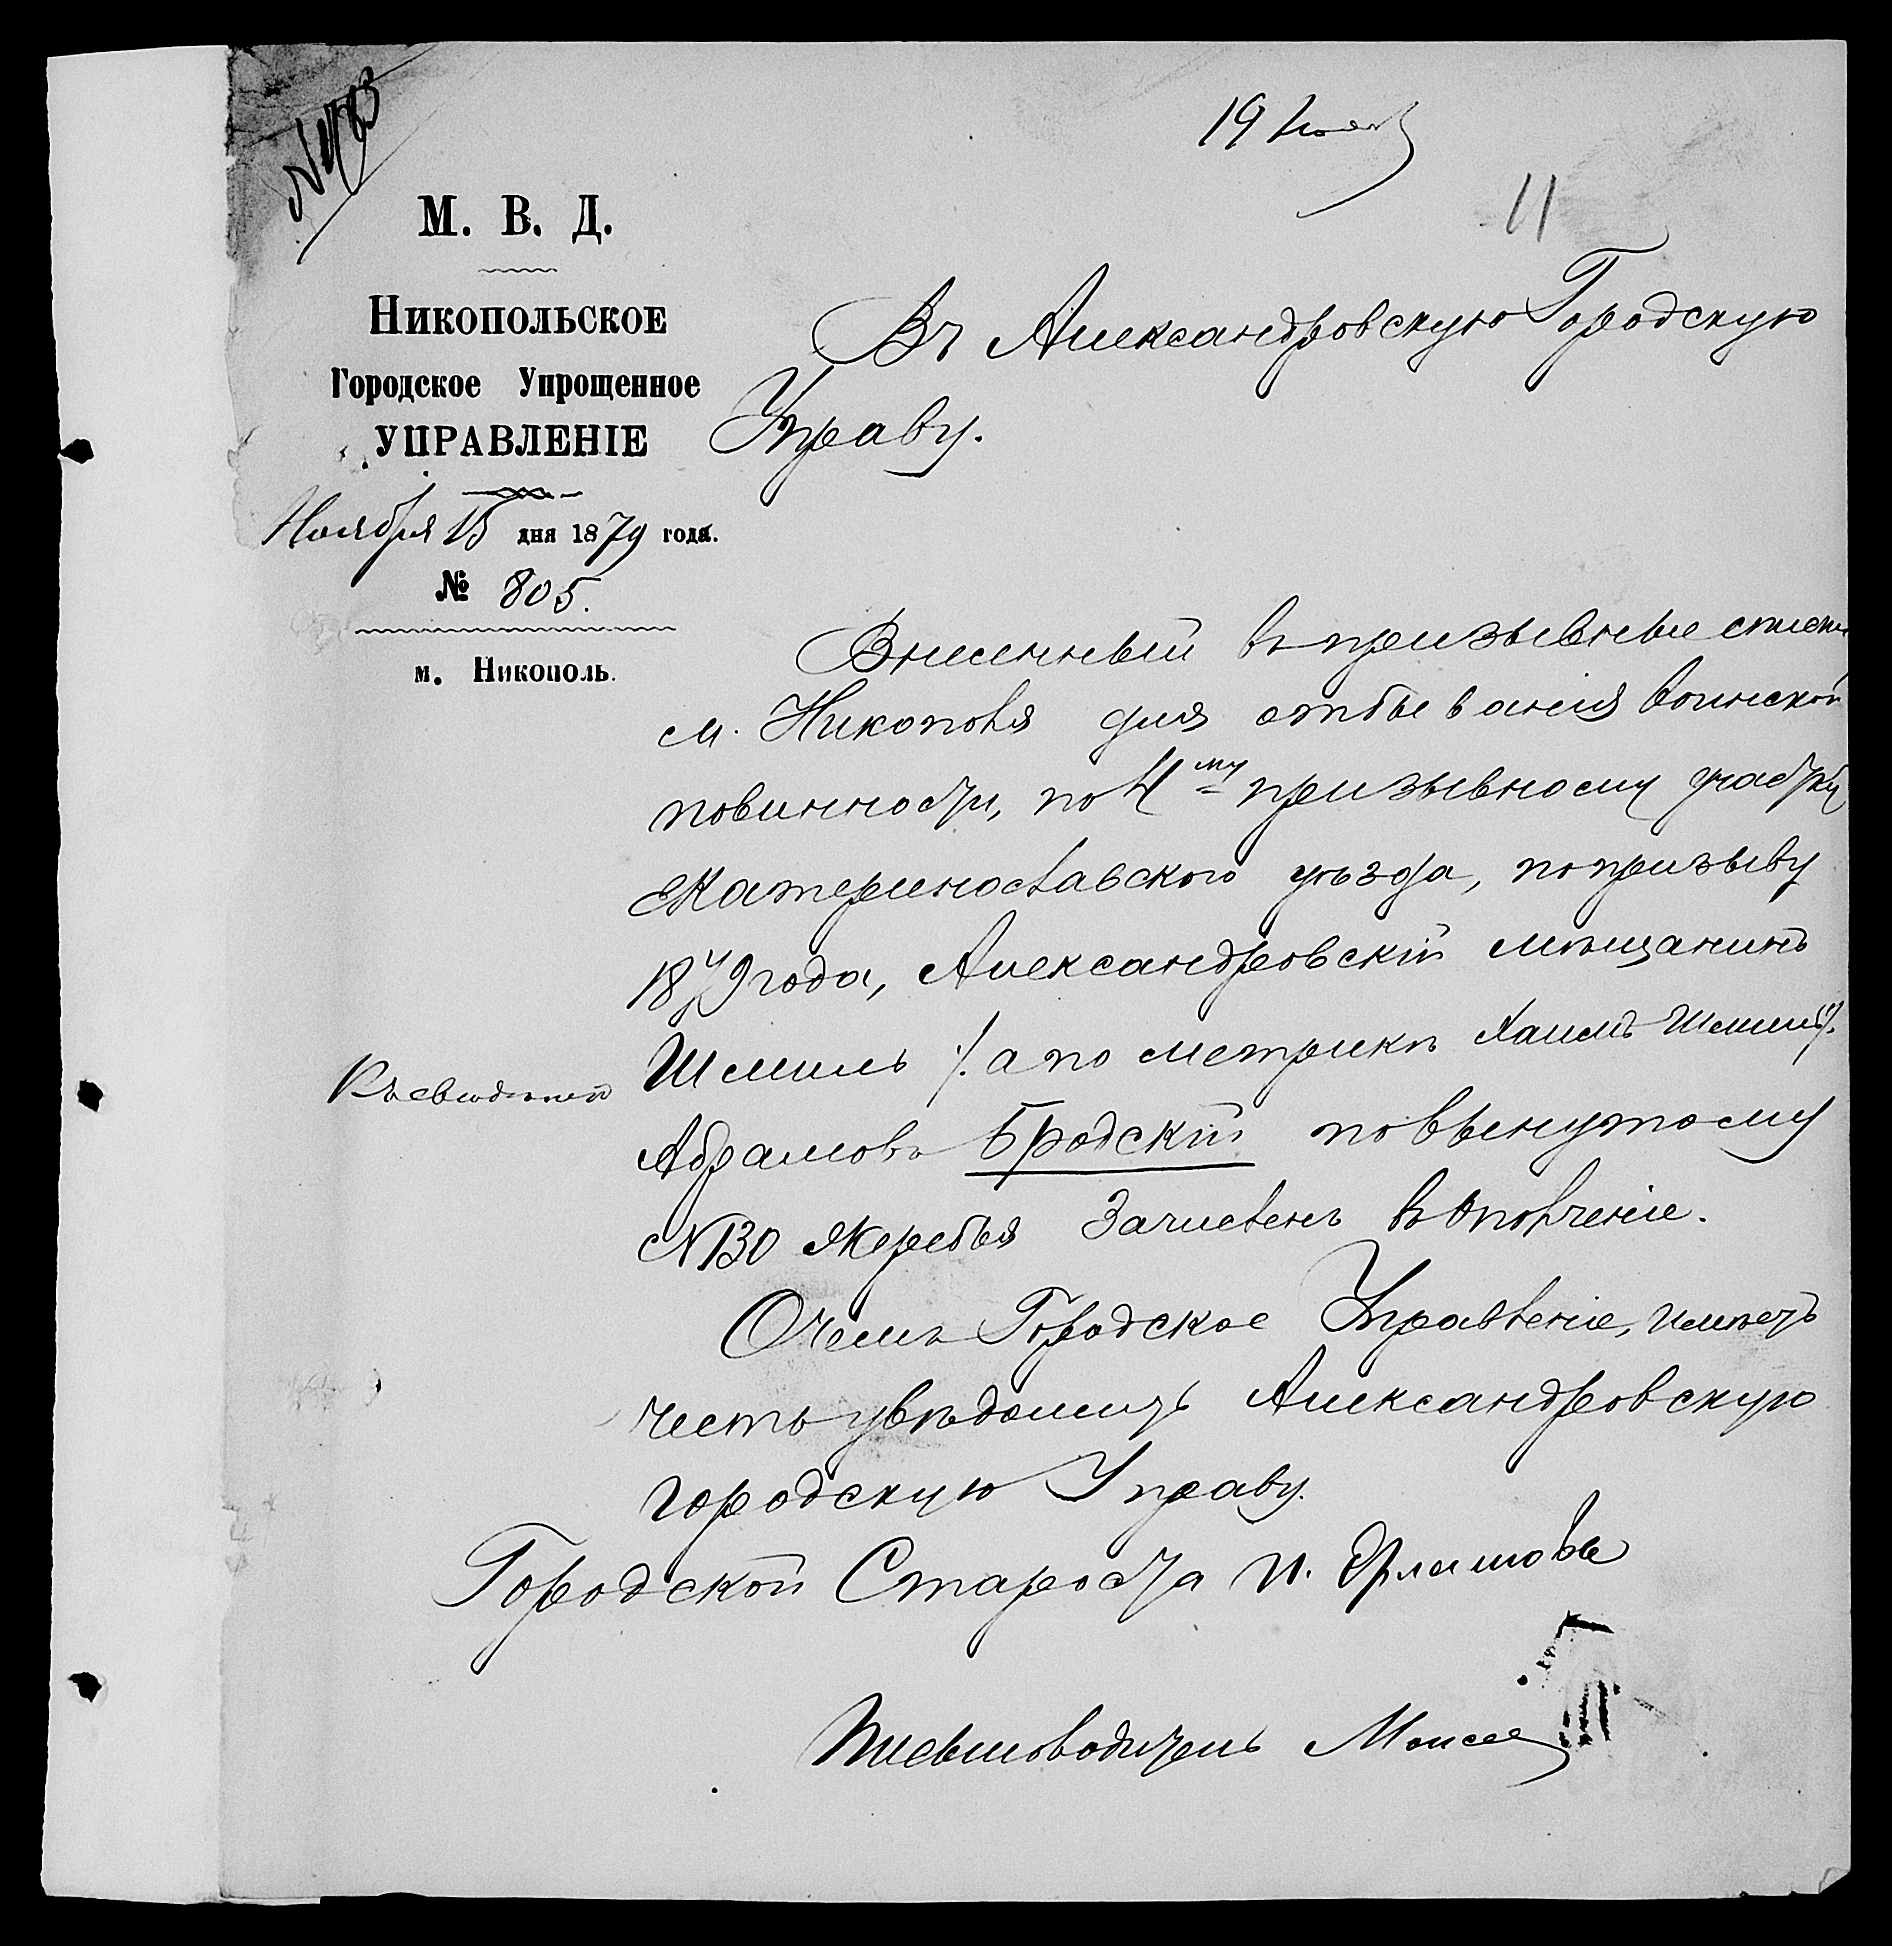 19 Ноя
11
М. В. Д.
Никопольское
Городское Упрощенное
УПРАВЛЕНІЕ
Ноября 15 дня 1879 года.
№ 805.
м. Никополь.
Въ Александровскую Городскую
Управу.
Внесенный въ призывные списки
м. Никополя для отбыванія воинской
повинности, по 4му призывному участку
Екатеринославского уѣзда, по призыву
1879 года, Александровскій мѣщанинъ
Шмиль /. а по метрикѣ Хаимъ Шмиль /.
Абрамовъ Бродскій по вынутому
№ 130 жеребья Зачисленъ въ Ополченіе.
Къ свѣдѣнію
О чемъ Городское Управленіе, имѣетъ
честь увѣдомить Александровскую
городскую Управу.
Городской Староста И.
Письмоводитель